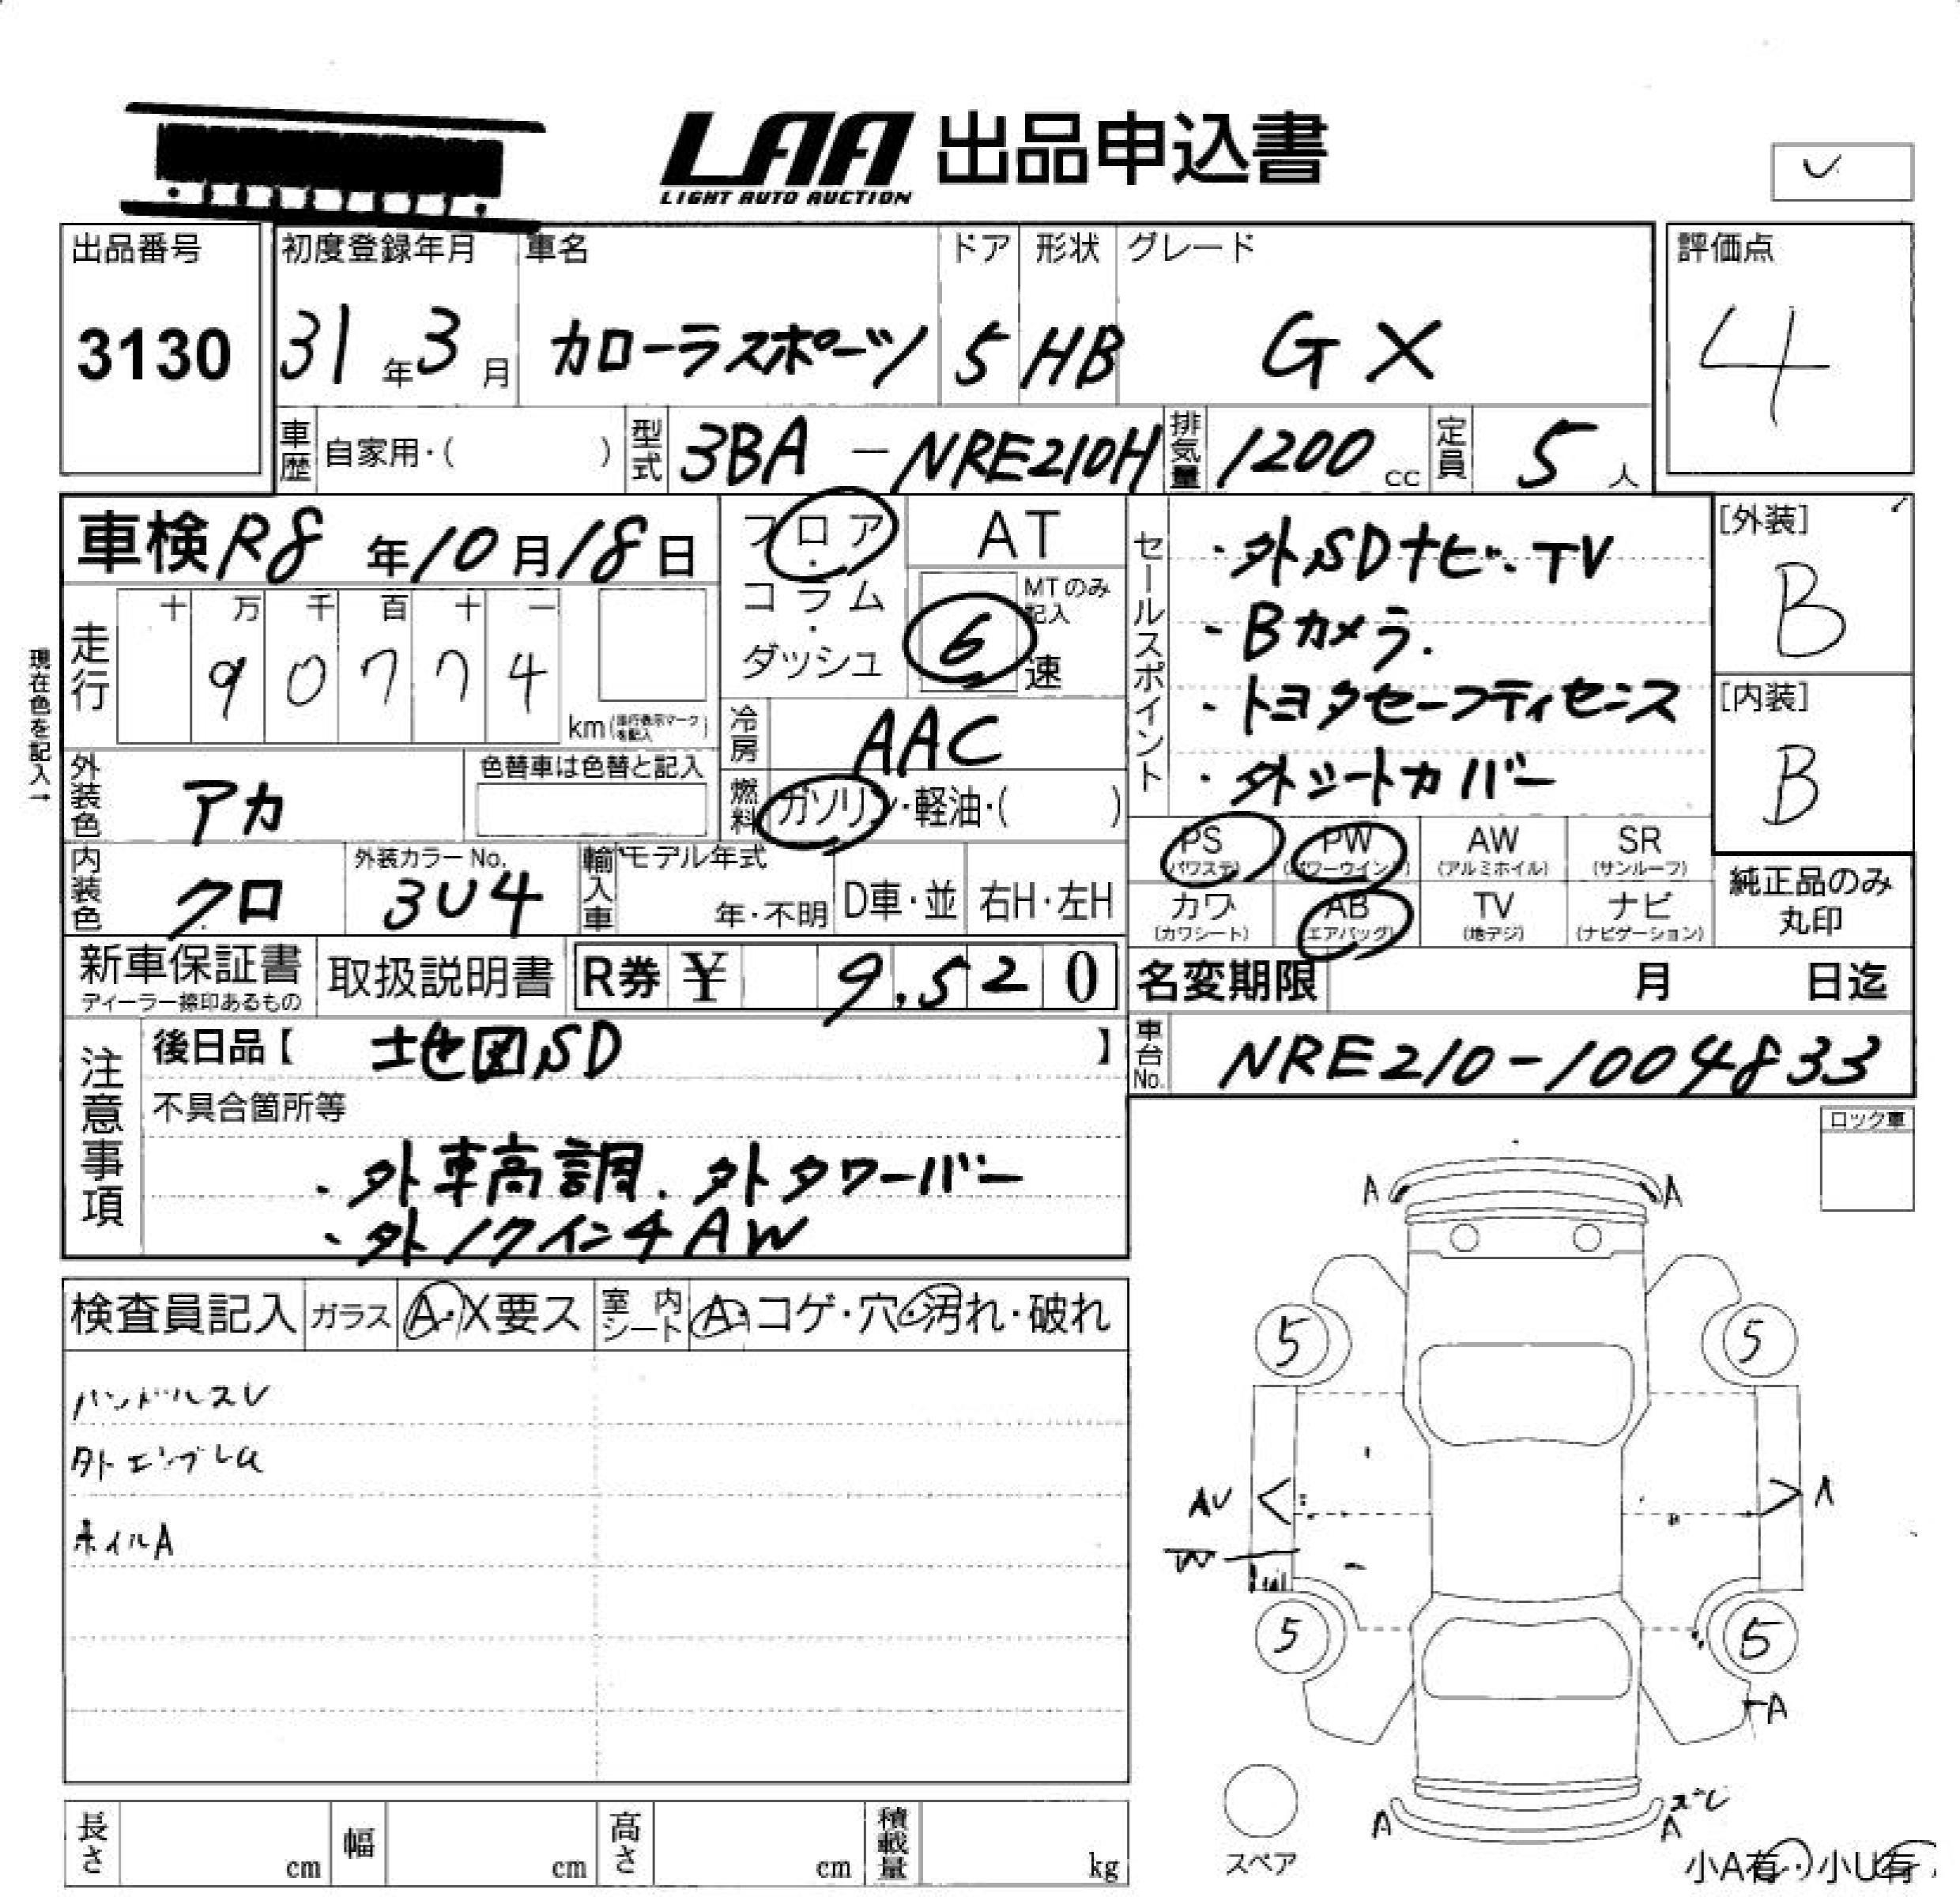 LAA 出品申込書
LIGHT AUTO AUCTION
出品番号
3130
初度登録年月
31年3月
車名
カローラスポーツ
ドア
5
形状
HB
グレード
GX
評価点
4
車歴 自家用・( )
型式 3BA-NRE210H
排気量 1200 cc
定員 5 人
車検 R8年10月18日
走行 十 万 千 百 十 一
90774
km(走行表示マークを記入)
現在色を記入→
フロア・コラム・ダッシュ
AT
MTのみ記入
6 速
冷房 AAC
燃料 ガソリン・軽油・( )
外装色 アカ
色替車は色替と記入
内装色 クロ
外装カラーNo.
3U4
輸入車 モデル年式
年・不明
D車・並
右H・左H
セールスポイント
・外SDナビ・TV
・Bカメラ.
・トヨタセーフティセンス
・外シートカバー
[外装]
B
[内装]
B
PS (パワステ)
PW (パワーウインド)
AW (アルミホイル)
SR (サンルーフ)
カワ (カワシート)
AB (エアバッグ)
TV (地デジ)
ナビ (ナビゲーション)
純正品のみ丸印
新車保証書
ディーラー捺印あるもの
取扱説明書
R券 ¥ 9,520
名変期限 月 日迄
車台No. NRE210-1004833
注意事項
後日品【 地図SD 】
不具合箇所等
・外車高調、外タワーバー
・外17インチAW
ロック車
検査員記入
ガラス A・X要ス
室内シート A・コゲ・穴・汚れ・破れ
ハンドルスレ
外エンブレム
ホイルA
A A
5 5
AU
A
W
5 5
A
A
A
スペア
小A有・小U有
長さ cm
幅 cm
高さ cm
積載量 kg